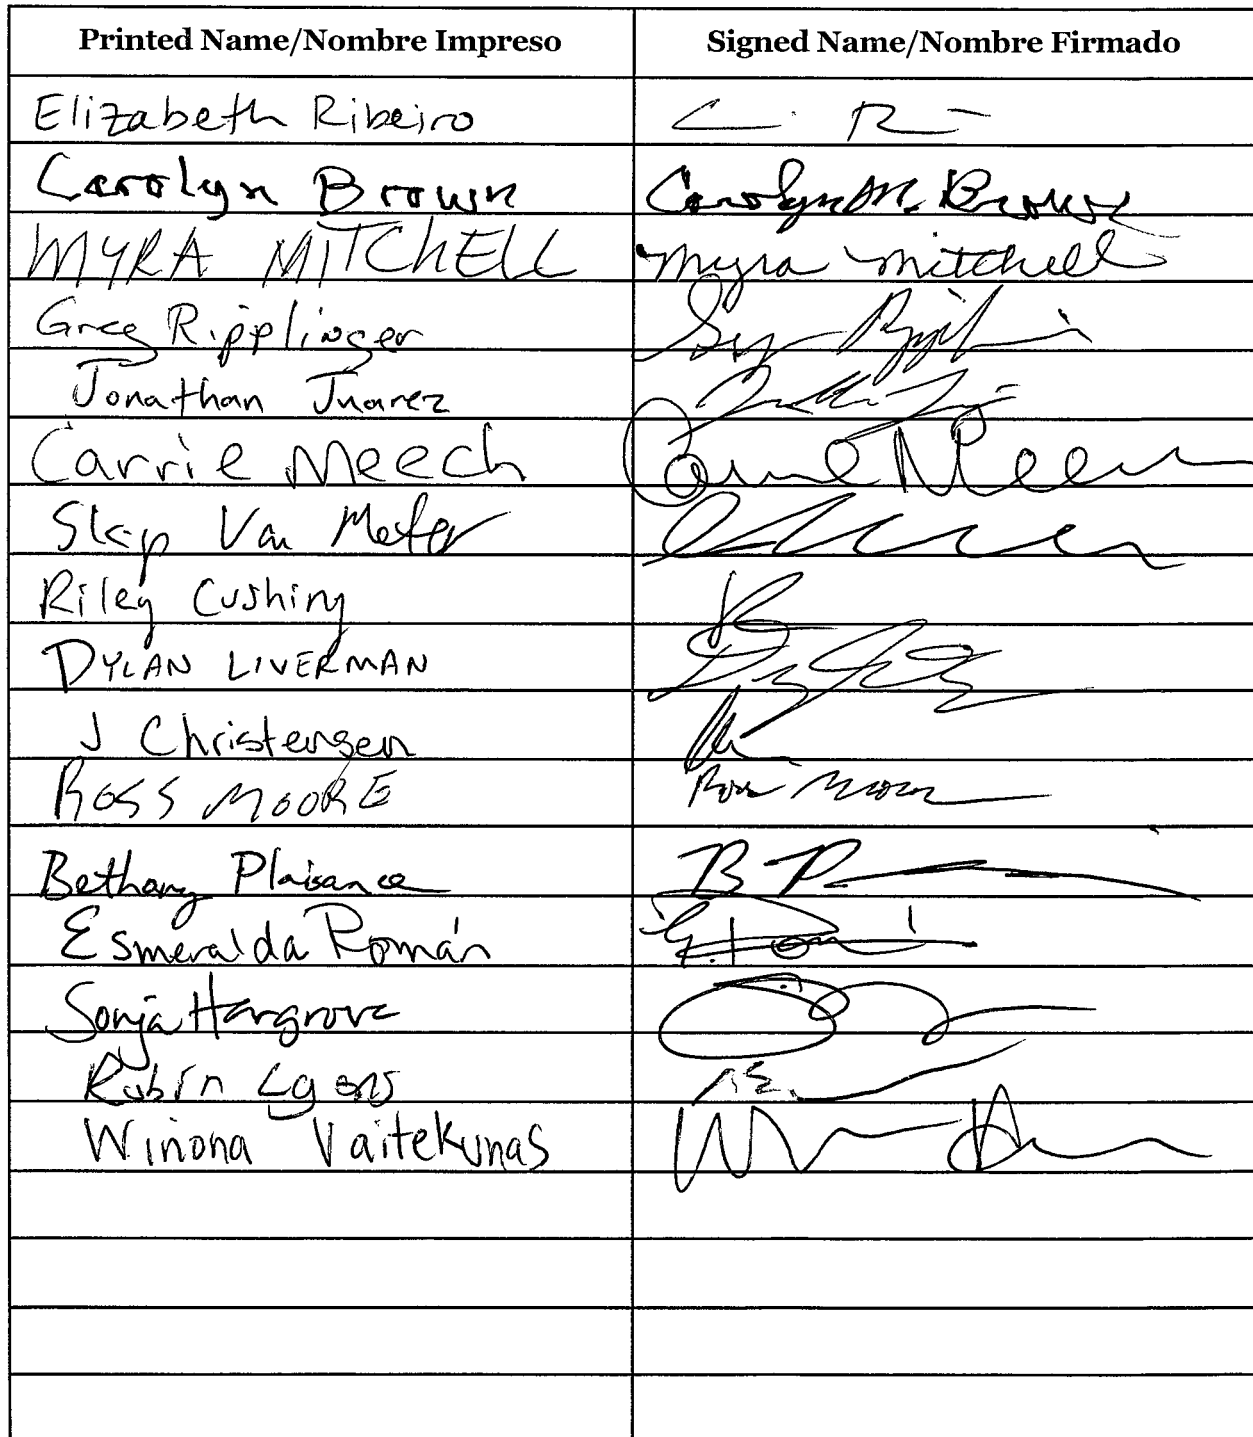 Printed Name/Nombre Impreso Signed Name/Nombre Firmado
Elizabeth Ribeiro
Carolyn Brown Carolyn M. Brown
MYRA MITCHELL Myra Mitchell
Greg Ripplinger
Jonathan Juarez
Carrie Meech Carrie Meech
Skip Van Meter
Riley Cushing
DYLAN LIVERMAN
J Christensen
ROSS MOORE Ross Moore
Bethany Plaisance B P
Esmeralda Román
Sonja Hargrove
Robin Lyons
Winona Vaitekunas